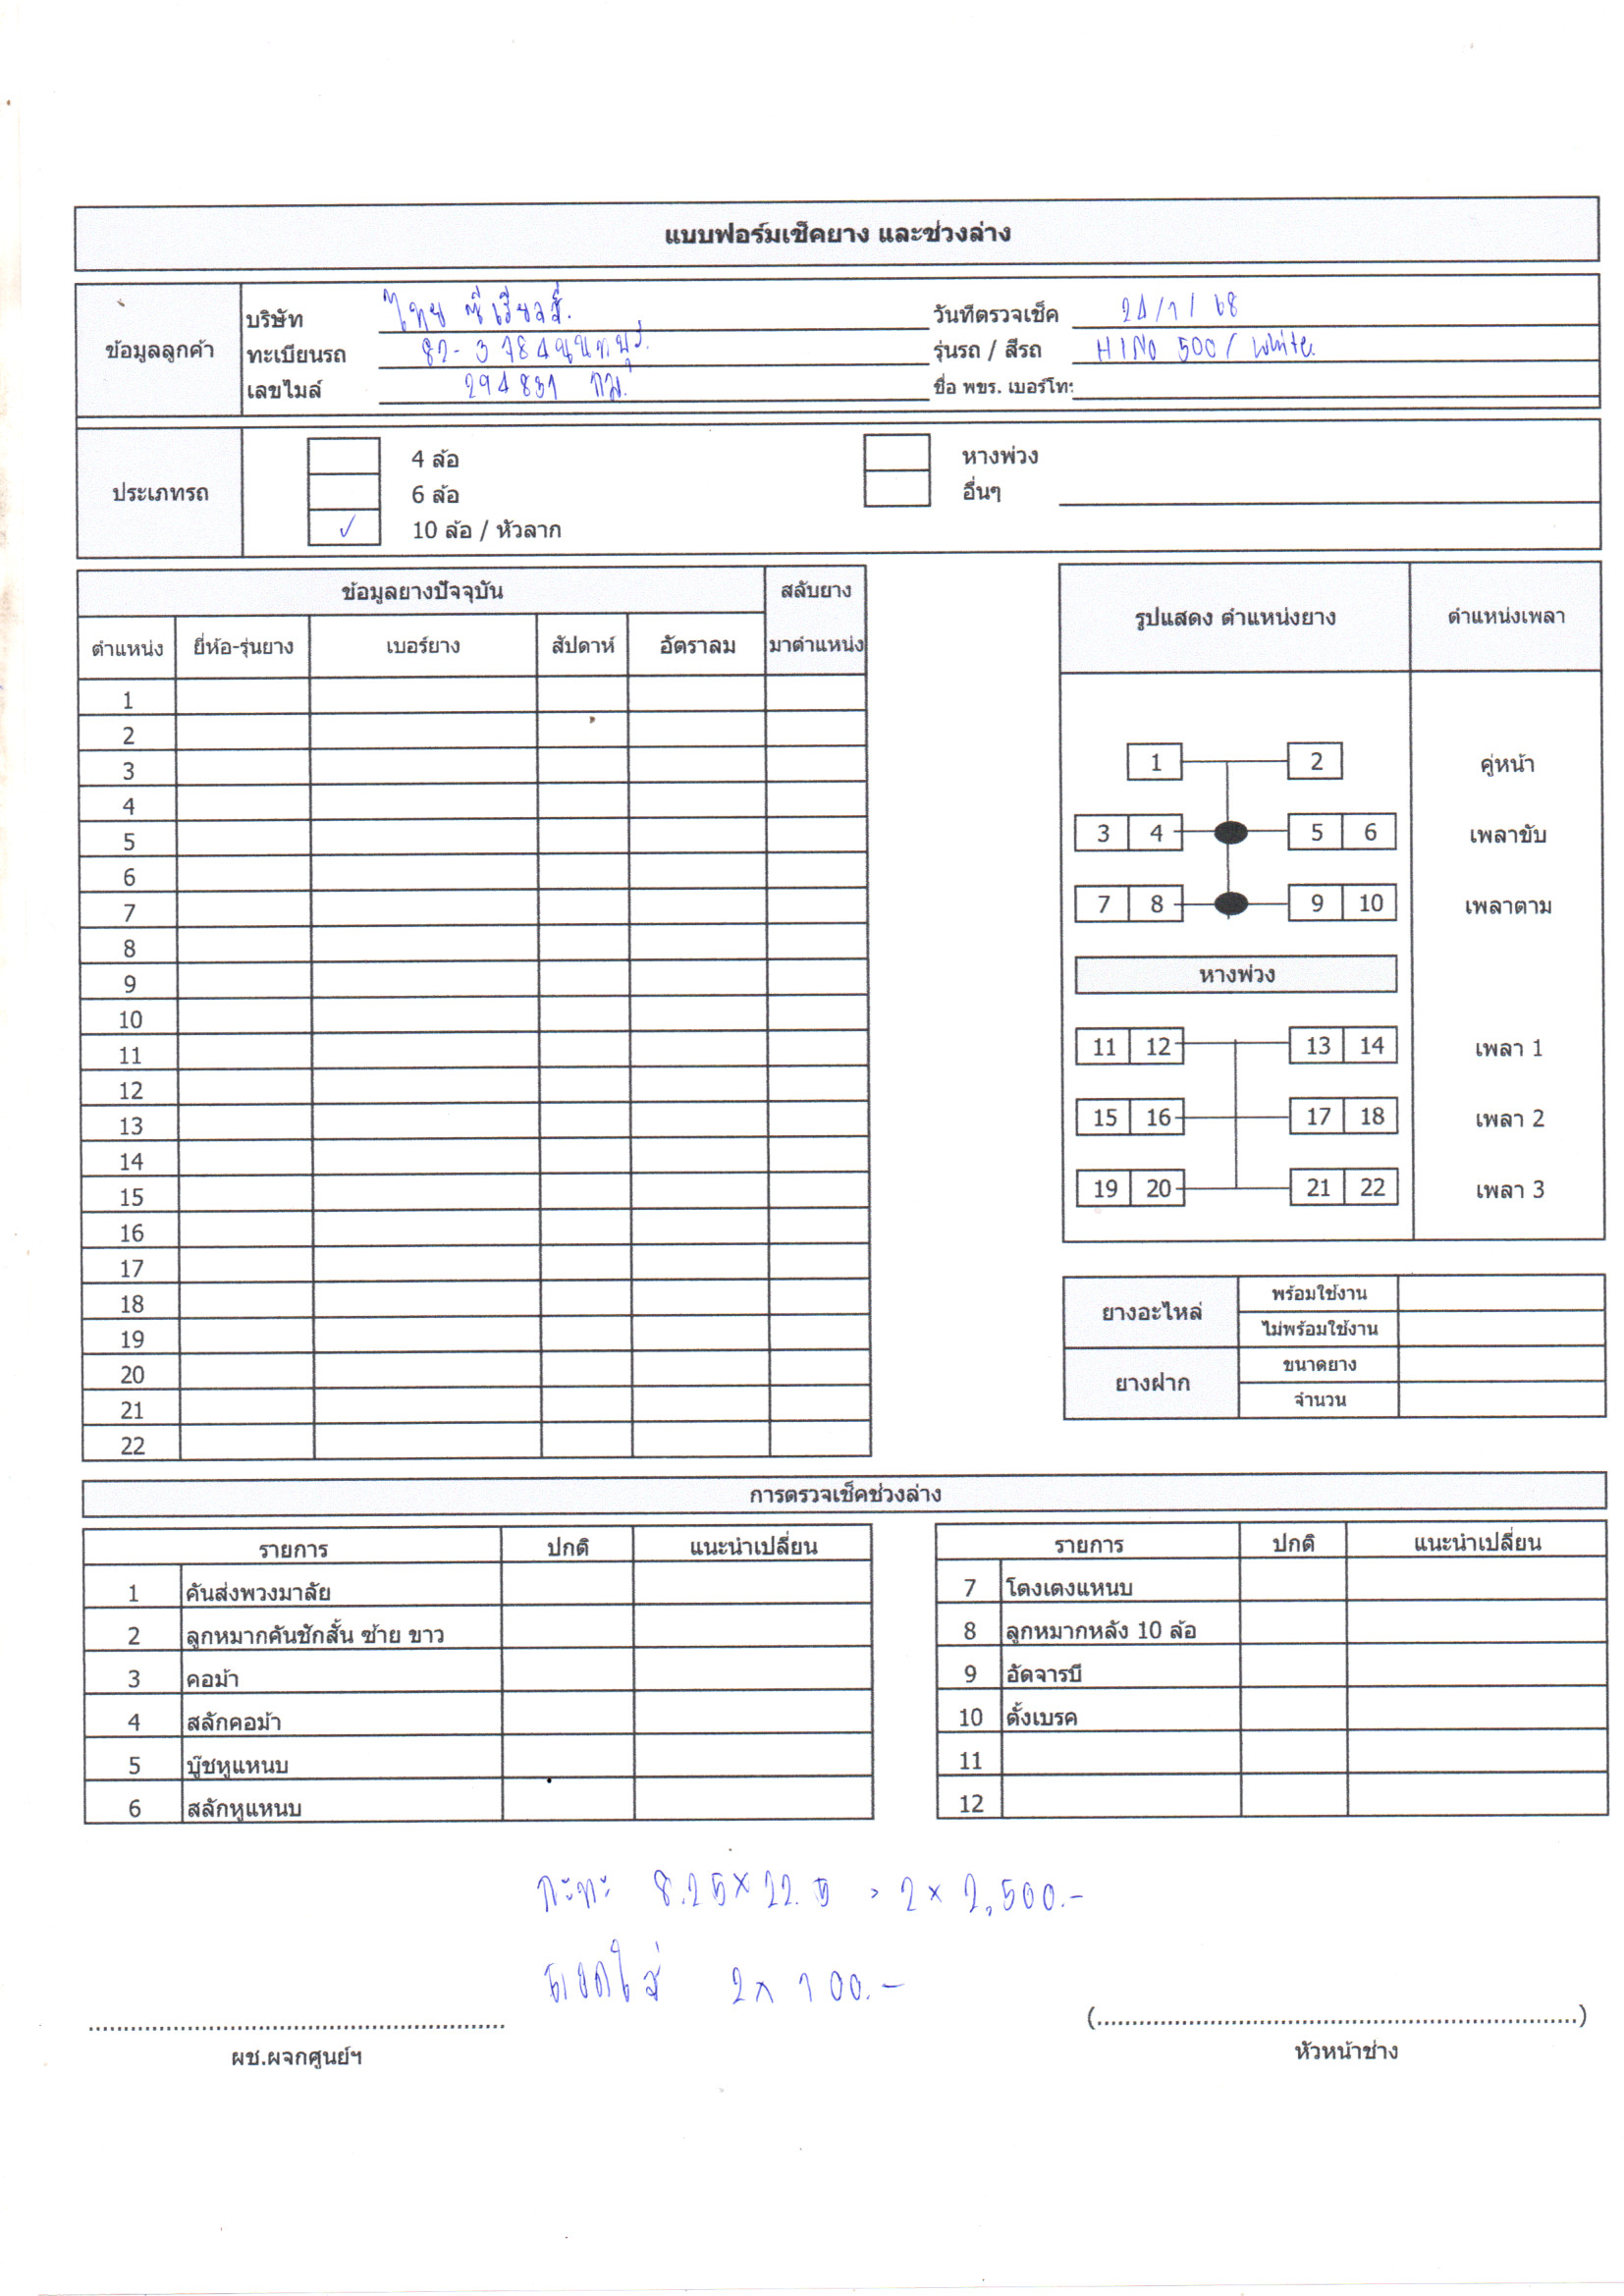 แบบฟอร์มเช็คยาง และช่วงล่าง
ข้อมูลลูกค้า
บริษัท ไทย ซีเรียวส์. วันที่ตรวจเช็ค 24/1/68
ทะเบียนรถ นนทบุรี. รุ่นรถ / สีรถ HINO 500/ White.
เลขไมล์ 294831 กม. ชื่อ พขร. เบอร์โท:
ประเภทรถ
4 ล้อ หางพ่วง
6 ล้อ อื่นๆ
✓ 10 ล้อ / หัวลาก
ข้อมูลยางปัจจุบัน สลับยาง
ตำแหน่ง ยี่ห้อ-รุ่นยาง เบอร์ยาง สัปดาห์ อัตราลม มาตำแหน่ง
1
2
3
4
5
6
7
8
9
10
11
12
13
14
15
16
17
18
19
20
21
22
รูปแสดง ตำแหน่งยาง ตำแหน่งเพลา
1 2 คู่หน้า
3 4 5 6 เพลาขับ
7 8 9 10 เพลาตาม
หางพ่วง
11 12 13 14 เพลา 1
15 16 17 18 เพลา 2
19 20 21 22 เพลา 3
ยางอะไหล่ พร้อมใช้งาน
ไม่พร้อมใช้งาน
ยางฝาก ขนาดยาง
จำนวน
การตรวจเช็คช่วงล่าง
รายการ ปกติ แนะนำเปลี่ยน
1 คันส่งพวงมาลัย
2 ลูกหมากคันชักสั้น ซ้าย ขาว
3 คอม้า
4 สลักคอม้า
5 บู๊ชหูแหนบ
6 สลักหูแหนบ
รายการ ปกติ แนะนำเปลี่ยน
7 โตงเตงแหนบ
8 ลูกหมากหลัง 10 ล้อ
9 อัดจารบี
10 ตั้งเบรค
11
12
กะทะ 8.25×22.5 2 × 2,500.-
ถอดใส่ 2× 100.-
ผช.ผจกศูนย์ฯ
(..............................)
หัวหน้าช่าง